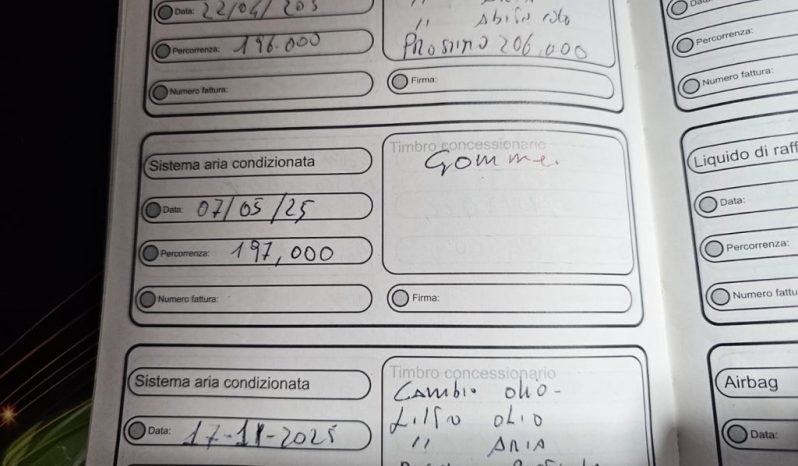 Data: 22/04/
" Abitacolo
Percorrenza: 196.000
Prossimo 206.000
Numero fattura:
Firma:
Sistema aria condizionata
Timbro concessionario
Gomme.
Data: 07/05/25
Percorrenza: 197,000
Numero fattura:
Firma:
Sistema aria condizionata
Timbro concessionario
Cambio olio-
Data: 17-11-2025
OLIO
" ARIA
Percorrenza:
Numero fattura:
Liquido di raff
Data:
Percorrenza:
Numero fattu
Airbag
Data: